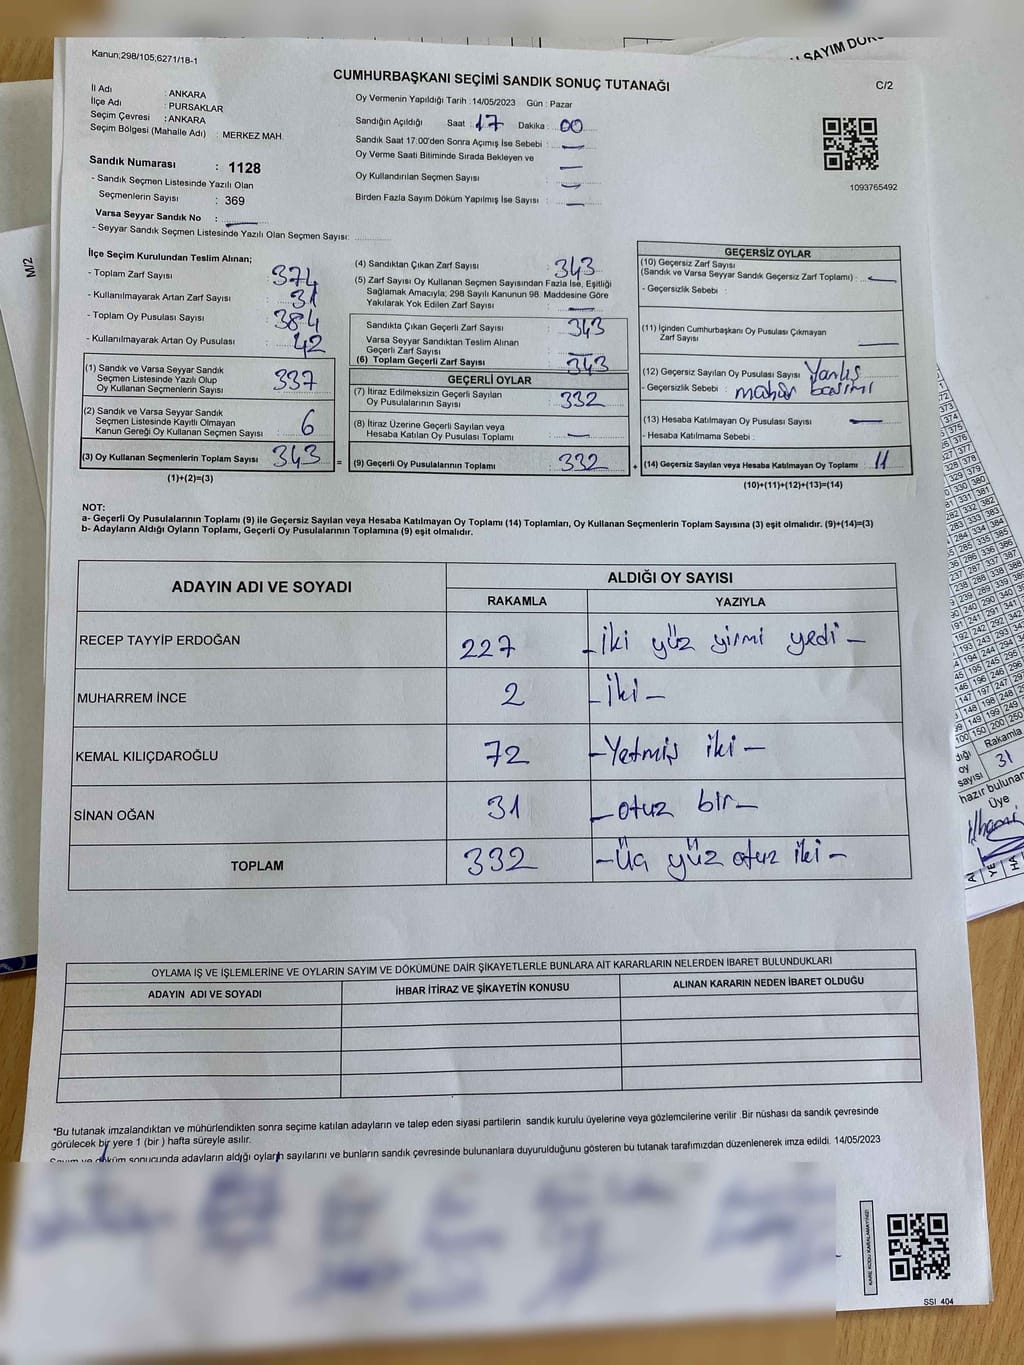 SAYIM DÖK
Kanun;298/105;6271/18-1
CUMHURBAŞKANI SEÇİMİ SANDIK SONUÇ TUTANAĞI
C/2
İl Adı : ANKARA
İlçe Adı : PURSAKLAR
Seçim Çevresi : ANKARA
Seçim Bölgesi (Mahalle Adı) : MERKEZ MAH.
Sandık Numarası : 1128
- Sandık Seçmen Listesinde Yazılı Olan
Seçmenlerin Sayısı : 369
Varsa Seyyar Sandık No :
- Seyyar Sandık Seçmen Listesinde Yazılı Olan Seçmen Sayısı:
Oy Vermenin Yapıldığı Tarih : 14/05/2023 Gün : Pazar
Sandığın Açıldığı Saat : 17 Dakika : 00
Sandık Saat 17:00'den Sonra Açımış İse Sebebi : —
Oy Verme Saati Bitiminde Sırada Bekleyen ve —
Oy Kullandırılan Seçmen Sayısı : —
Birden Fazla Sayım Döküm Yapılmış İse Sayısı : —
1093765492
İlçe Seçim Kurulundan Teslim Alınan;
- Toplam Zarf Sayısı : 374
- Kullanılmayarak Artan Zarf Sayısı : 31
- Toplam Oy Pusulası Sayısı : 384
- Kullanılmayarak Artan Oy Pusulası : 42
(1) Sandık ve Varsa Seyyar Sandık
Seçmen Listesinde Yazılı Olup
Oy Kullanan Seçmenlerin Sayısı : 337
(2) Sandık ve Varsa Seyyar Sandık
Seçmen Listesinde Kayıtlı Olmayan
Kanun Gereği Oy Kullanan Seçmen Sayısı : 6
(3) Oy Kullanan Seçmenlerin Toplam Sayısı : 343
(1)+(2)=(3)
=
(4) Sandıktan Çıkan Zarf Sayısı : 343
(5) Zarf Sayısı Oy Kullanan Seçmen Sayısından Fazla İse, Eşitliği
Sağlamak Amacıyla; 298 Sayılı Kanunun 98. Maddesine Göre
Yakılarak Yok Edilen Zarf Sayısı : —
Sandıkta Çıkan Geçerli Zarf Sayısı : 343
Varsa Seyyar Sandıktan Teslim Alınan
Geçerli Zarf Sayısı : —
(6) Toplam Geçerli Zarf Sayısı : 343
GEÇERLİ OYLAR
(7) İtiraz Edilmeksizin Geçerli Sayılan
Oy Pusulalarının Sayısı : 332
(8) İtiraz Üzerine Geçerli Sayılan veya
Hesaba Katılan Oy Pusulası Toplamı : —
(9) Geçerli Oy Pusulalarının Toplamı : 332
+
GEÇERSİZ OYLAR
(10) Geçersiz Zarf Sayısı
(Sandık ve Varsa Seyyar Sandık Geçersiz Zarf Toplamı) : —
- Geçersizlik Sebebi :
(11) İçinden Cumhurbaşkanı Oy Pusulası Çıkmayan
Zarf Sayısı : —
(12) Geçersiz Sayılan Oy Pusulası Sayısı : Yanlış
- Geçersizlik Sebebi : mühür basımı
(13) Hesaba Katılmayan Oy Pusulası Sayısı : —
- Hesaba Katılmama Sebebi :
(14) Geçersiz Sayılan veya Hesaba Katılmayan Oy Toplamı : 11
(10)+(11)+(12)+(13)=(14)
NOT:
a- Geçerli Oy Pusulalarının Toplamı (9) ile Geçersiz Sayılan veya Hesaba Katılmayan Oy Toplamı (14) Toplamları, Oy Kullanan Seçmenlerin Toplam Sayısına (3) eşit olmalıdır. (9)+(14)=(3)
b- Adayların Aldığı Oyların Toplamı, Geçerli Oy Pusulalarının Toplamına (9) eşit olmalıdır.
ADAYIN ADI VE SOYADI ALDIĞI OY SAYISI
RAKAMLA YAZIYLA
RECEP TAYYİP ERDOĞAN 227 - İki yüz yirmi yedi -
MUHARREM İNCE 2 - İki -
KEMAL KILIÇDAROĞLU 72 - Yetmiş iki -
SİNAN OĞAN 31 - otuz bir -
TOPLAM 332 - Üç yüz otuz iki -
OYLAMA İŞ VE İŞLEMLERİNE VE OYLARIN SAYIM VE DÖKÜMÜNE DAİR ŞİKAYETLERLE BUNLARA AİT KARARLARIN NELERDEN İBARET BULUNDUKLARI
ADAYIN ADI VE SOYADI İHBAR İTİRAZ VE ŞİKAYETİN KONUSU ALINAN KARARIN NEDEN İBARET OLDUĞU
*Bu tutanak imzalandıktan ve mühürlendikten sonra seçime katılan adayların ve talep eden siyasi partilerin sandık kurulu üyelerine veya gözlemcilerine verilir .Bir nüshası da sandık çevresinde
görülecek bir yere 1 (bir ) hafta süreyle asılır.
Sayım ve döküm sonucunda adayların aldığı oyların sayılarını ve bunların sandık çevresinde bulunanlara duyurulduğunu gösteren bu tutanak tarafımızdan düzenlenerek imza edildi. 14/05/2023
KARE KODU KARALAMAYINIZ!
SSI 404
M/2
Rakamla
oy
sayısı 31
hazır bulunan
Üye